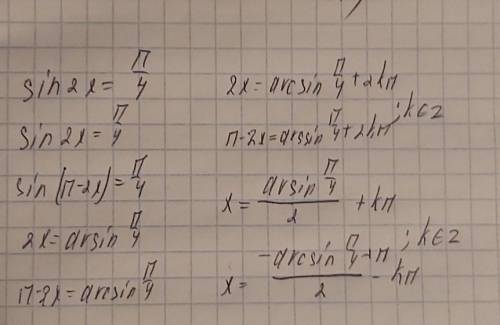 sin 2x = π/4
sin 2x = π/4
sin(π-2x) = π/4
2x = arsin π/4
π-2x = arcsin π/4
2x = arcsin π/4 + 2kπ
π-2x = arssin π/4 + 2kπ ; k∈Z
x = arsin π/4 / 2 + kπ
x = -arcsin π/4 + π / 2 - kπ ; k∈Z